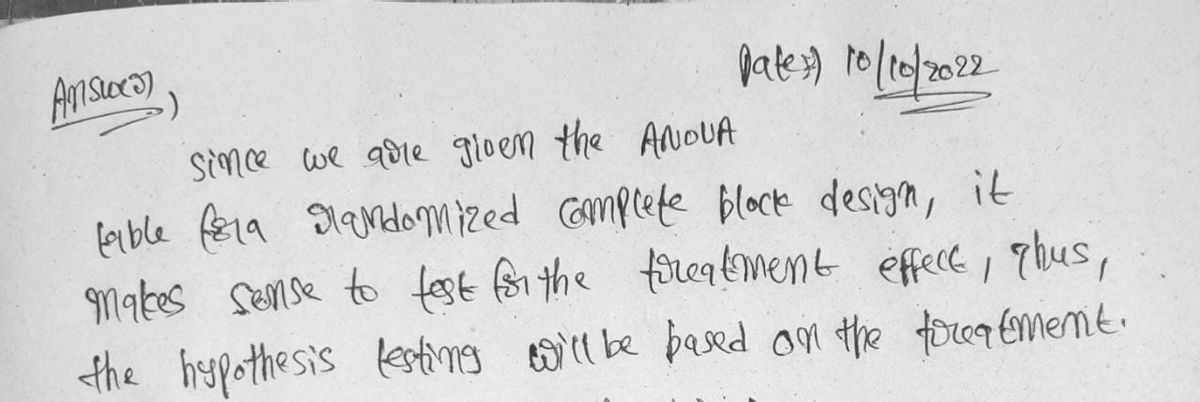 Answer,
Date:) 10/10/2022
since we are given the ANOVA
table for a randomized complete block design, it
makes sense to test for the treatment effect, Thus,
the hypothesis testing will be based on the treatment.